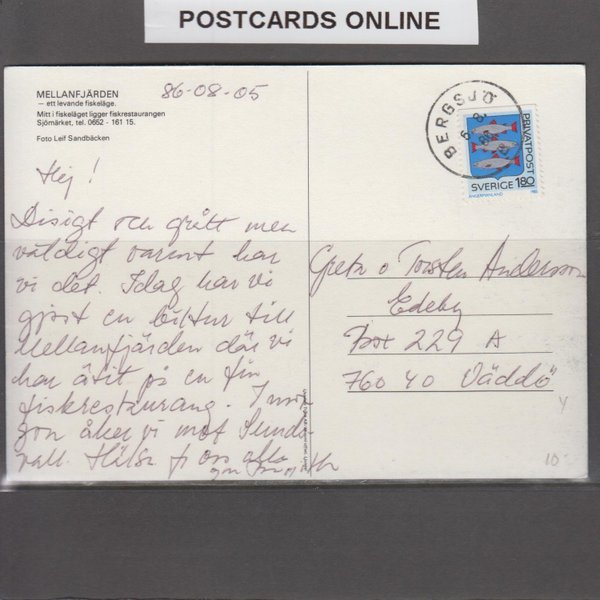 POSTCARDS ONLINE
MELLANFJÄRDEN
— ett levande fiskeläge.
Mitt i fiskeläget ligger fiskrestaurangen
Sjömärket, tel. 0652 - 161 15.
Foto Leif Sandbäcken
86-08-05
BERGSJÖ
PRIVATPOST
SVERIGE 1.80
ÅNGERMANLAND
Hej!
Disigt och grått men
väldigt varmt har
vi det. Idag har vi
gjort en biltur till
Mellanfjärden där vi
har ätit på en fin
fiskrestaurang. I mor
gon åker vi mot Sunds-
vall. Hälsn fr oss alla
Greta o Torsten Andersson
Edeby
Post 229 A
760 40 Väddö
10-